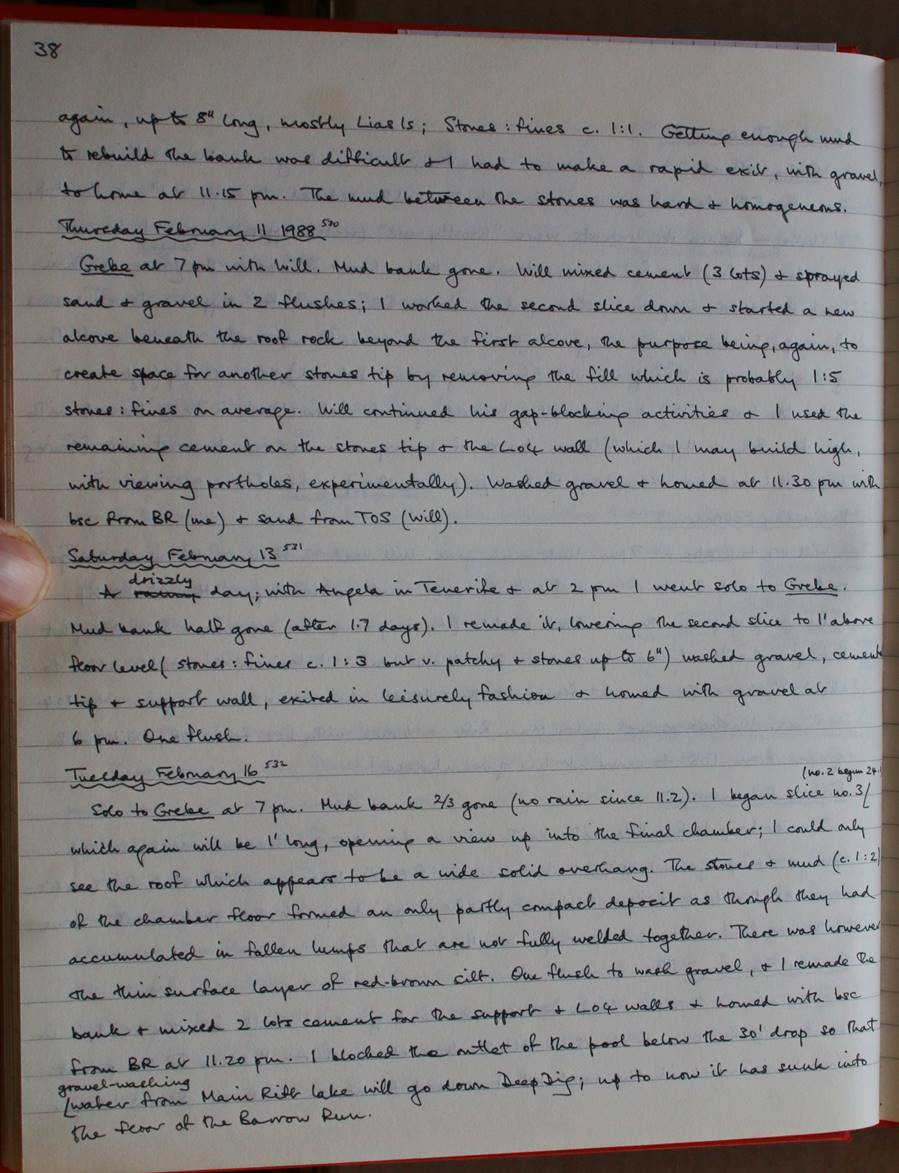 38
again, up to 8" long, mostly Lias ls; Stones: fines c. 1:1. Getting enough mud
to rebuild the bank was difficult & I had to make a rapid exit, with gravel,
to home at 11.15 pm. The mud between the stones was hard & homogeneous.
Thursday February 11 1988 530
Grebe at 7 pm with Will. Mud bank gone. Will mixed cement (3 lots) & sprayed
sand & gravel in 2 flushes; I worked the second slice down & started a new
alcove beneath the roof rock beyond the first alcove, the purpose being, again, to
create space for another stones tip by removing the fill which is probably 1:5
stones: fines on average. Will continued his gap-blocking activities & I used the
remaining cement on the stones tip & the L04 wall (which I may build high,
with viewing portholes, experimentally). Washed gravel & homed at 11.30 pm with
bsc from BR (me) & sand from TOS (Will).
Saturday February 13 531
A drizzly day; with Angela in Tenerife & at 2 pm I went solo to Grebe.
Mud bank half gone (after 1.7 days). I remade it, lowering the second slice to 1' above
floor level (stones: fines c. 1:3 but v. patchy & stones up to 6") washed gravel, cement
tip & support wall, exited in leisurely fashion & homed with gravel at
6 pm. One flush.
Tuesday February 16 532
(no. 2 begun 24.
Solo to Grebe at 7 pm. Mud bank 2/3 gone (no rain since 11.2). I began slice no. 3/
which again will be 1' long, opening a view up into the final chamber; I could only
see the roof which appears to be a wide solid overhang. The stones & mud (c. 1:2)
of the chamber floor formed an only partly compact deposit as though they had
accumulated in fallen lumps that are not fully welded together. There was however
the thin surface layer of red-brown silt. One flush to wash gravel, & I remade the
bank & mixed 2 lots cement for the support & L04 walls & homed with bsc
from BR at 11.20 pm. I blocked the outlet of the pool below the 30' drop so that
gravel-washing
/water from Main Rift lake will go down Deep Dig; up to now it has sunk into
the floor of the Barrow Run.